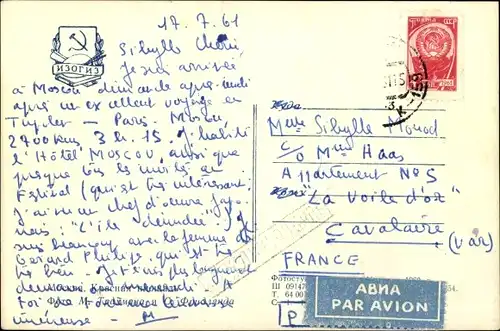 17.7.61
ИЗОГИЗ
Sibylle Chérie,
Je suis arrivée
à Moscou dimanche après-midi
après un excellent voyage en
Tupolev – Paris – Moscou,
2700 kms 3 h. 15. J'habite
l'Hôtel MOSCOU, ainsi que
presque tous les invités au
Festival (qui est très intéressant,
j'ai vu un chef d'oeuvre japo-
nais: "L'île dénudée".) Je
suis beaucoup avec la femme de
Gérard Philipe, qui est très
très bien. Je t'écris plus longuement
demain. A
toi
M
Куда
Mme Sibylle Monod
c/o Mme Haas
Appartement No 5
"La Voile d'or"
Cavalaire
(Var)
FRANCE
АВИА
PAR AVION
К-159